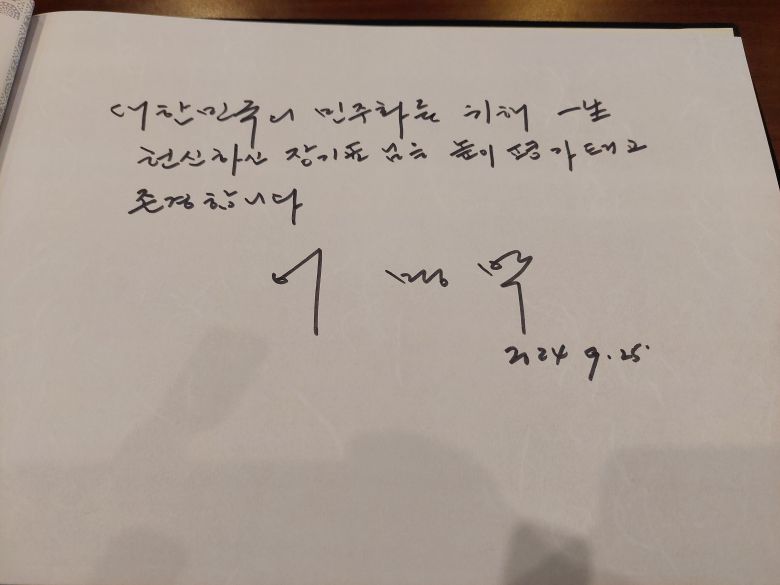 대한민국의 민주화를 위해 一生
헌신하신 장기표 님을 높이
존경합니다
이
2024 9.25.